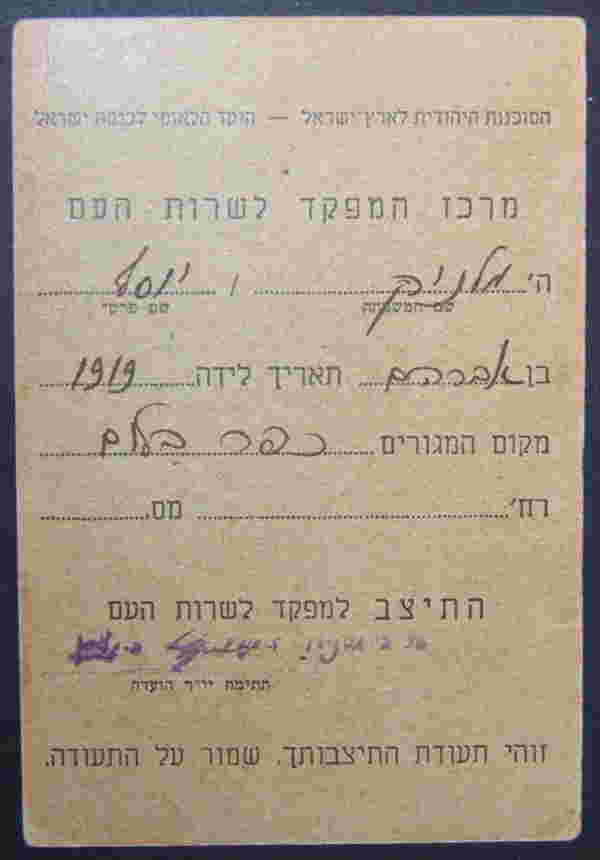 הסוכנות היהודית לארץ־ישראל — הועד הלאומי לכנסת ישראל
מרכז המפקד לשרות העם
ה' מלניק / יוסף
שם המשפחה שם פרטי
בן אברהם תאריך לידה 1919
מקום המגורים כפר בלום
רח' מס
התיצב למפקד לשרות העם
חתימת יו"ר הועדה
זוהי תעודת התיצבותך. שמור על התעודה.